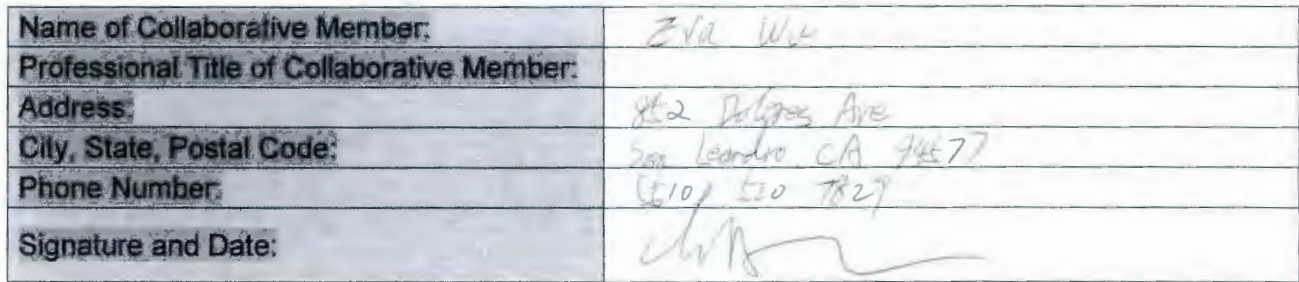 Name of Collaborative Member: Eva Wu
Professional Title of Collaborative Member:
Address: 852 Dolores Ave
City, State, Postal Code: San Leandro CA 94577
Phone Number: (510) 510 7829
Signature and Date: